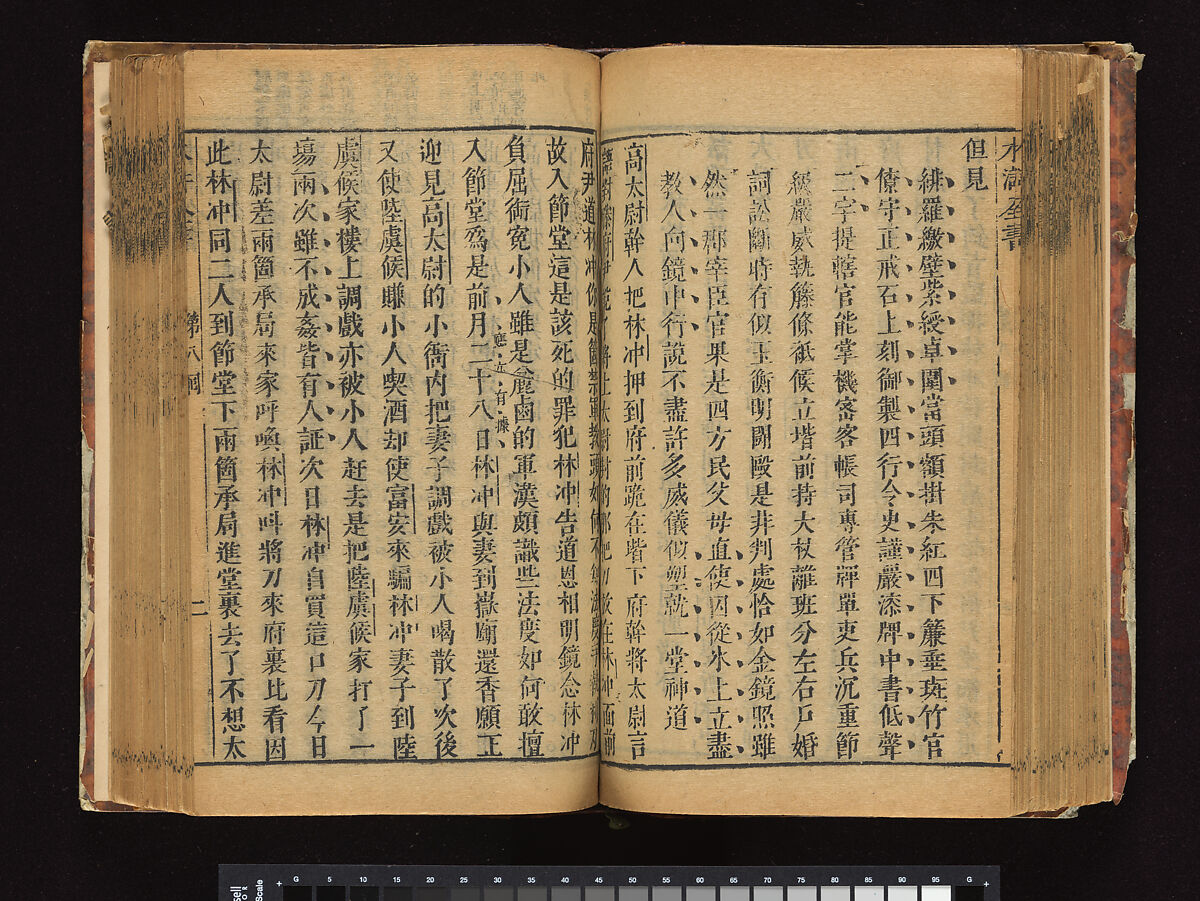 水滸全書
但見
緋羅繳壁紫綬卓圍當頭額掛朱紅四下簾垂斑竹官
僚守正戒石上刻御製四行令史謹嚴漆牌中書低聲
二字提轄官能掌機密客帳司專管牌單吏兵沉重節
級嚴威執籐條祗候立堦前持大杖離班分左右戶婚
詞訟斷時有似玉衡明鬬毆是非判處恰如金鏡照雖
然一郡宰臣官果是四方民父母直使囚從氷上立盡
教人向鏡中行說不盡許多威儀似塑就一堂神道
高太尉幹人把林冲押到府前跪在堦下府幹將太尉言
語對滕府尹說了將上太尉封的那把刀放在林冲面前
府尹道林冲你是箇禁軍教頭如何不知法度手執利刃
故入節堂這是該死的罪犯林冲告道恩相明鏡念林冲
負屈銜冤小人雖是麁鹵的軍漢頗識些法度如何敢擅
入節堂爲是前月二十八日林冲與妻到嶽廟還香願正
應占有據
迎見高太尉的小衙內把妻子調戲被小人喝散了次後
又使陸虞候賺小人喫酒却使富安來騙林冲妻子到陸
虞候家樓上調戲亦被小人赶去是把陸虞候家打了一
塲兩次雖不成姦皆有人証次日林冲自買這口刀今日
太尉差兩箇承局來家呼喚林冲呌將刀來府裏比看因
此林冲同二人到節堂下兩箇承局進堂裏去了不想太
第八回
二